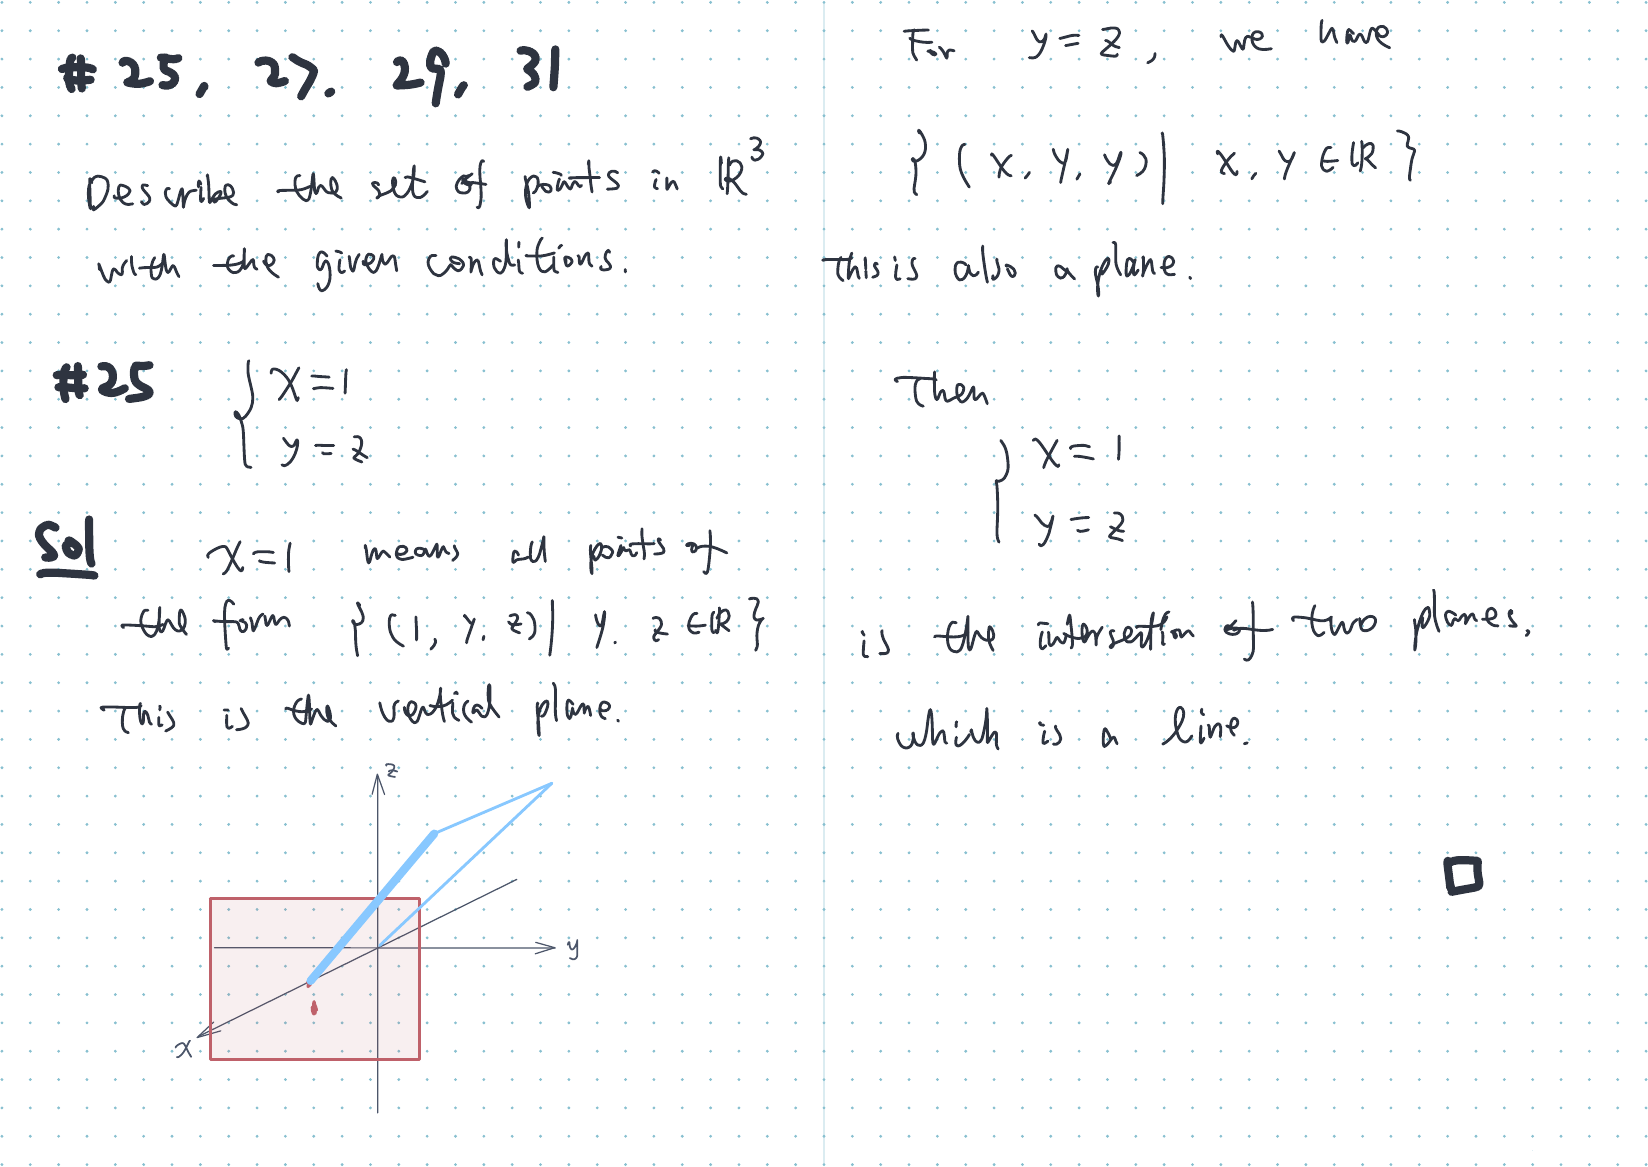 # 25, 27. 29, 31
Describe the set of points in ℝ³
with the given conditions.
#25 { x = 1
y = z
Sol x = 1 means all points of
the form { (1, y. z) | y. z ∈ ℝ }
This is the vertical plane.
z
y
x
1
For y = z, we have
{ (x, y, y) | x, y ∈ ℝ }
This is also a plane.
Then
{ x = 1
y = z
is the intersection of two planes,
which is a line.
□